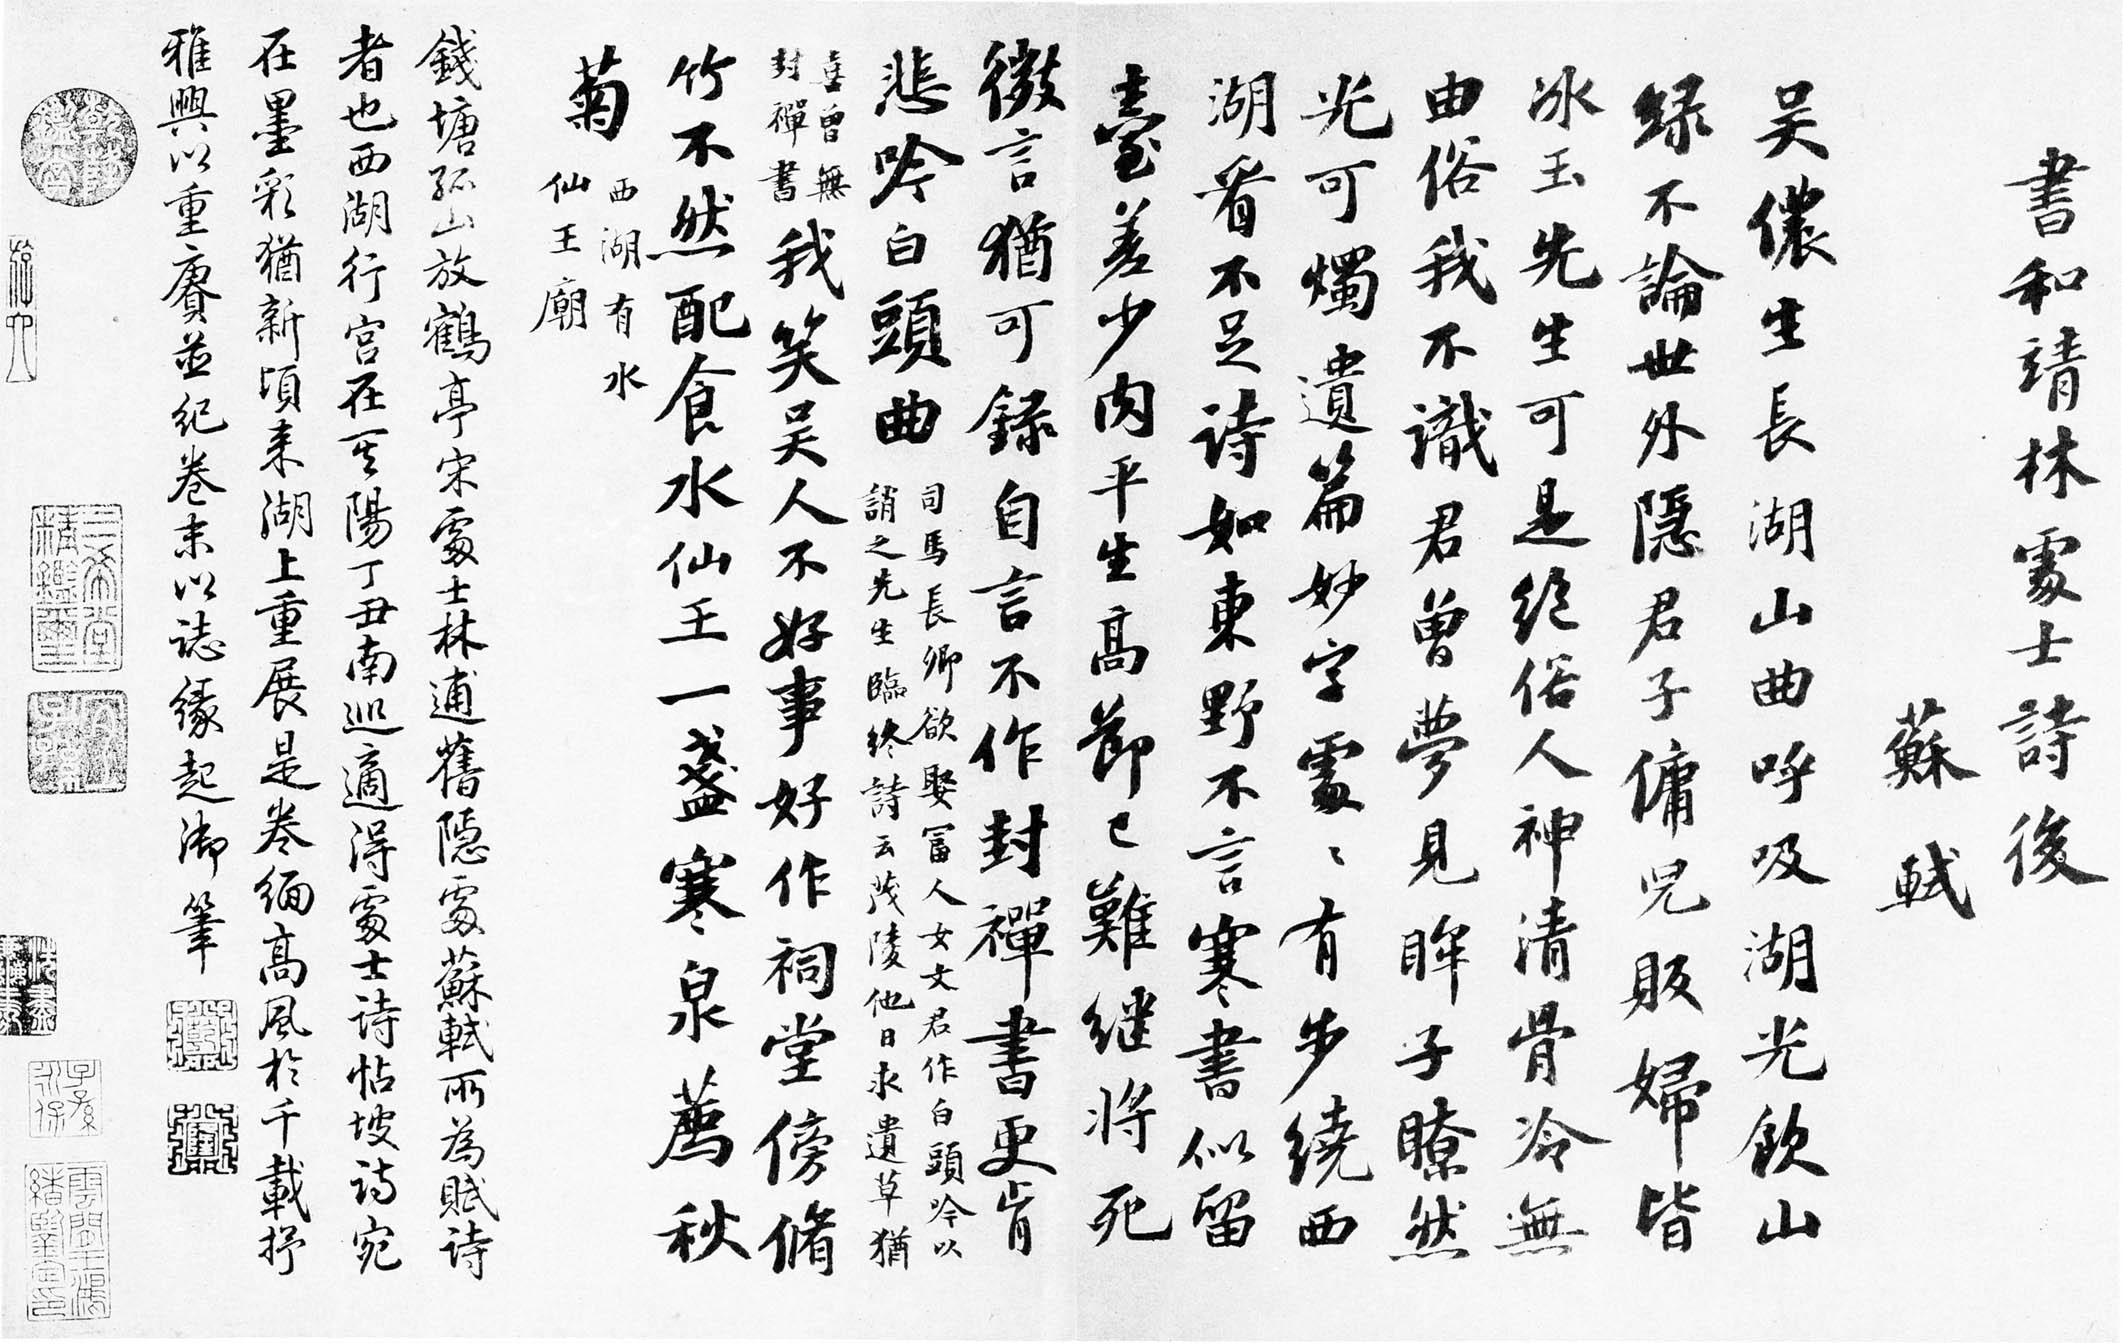 書和靖林處士詩後
蘇軾
吳儂生長湖山曲呼吸湖光飲山
綠不論世外隱君子傭兒販婦皆
冰玉先生可是絕俗人神清骨冷無
由俗我不識君曾夢見眸子瞭然
光可燭遺篇妙字處〻有步繞西
湖看不足詩如東野不言寒書似留
臺差少肉平生高節已難繼將死
微言猶可錄自言不作封禪書更肯
悲吟白頭曲
司馬長卿欲娶富人女文君作白頭吟以
誚之先生臨終詩云茂陵他日求遺草猶
喜曾無
封禪書
我笑吳人不好事好作祠堂傍脩
竹不然配食水仙王一盞寒泉薦秋
菊
西湖有水
仙王廟
錢塘孤山放鶴亭宋處士林逋舊隱處蘇軾所為賦詩
者也西湖行宮在其陽丁丑南巡適得處士詩帖坡詩宛
在墨彩猶新頃來湖上重展是卷緬高風於千載抒
雅興以重賡並紀卷末以誌緣起御筆
乾隆鑑賞
三希堂精鑑璽
宜子孫
子孫永保
雲間王鴻緒鑒定印